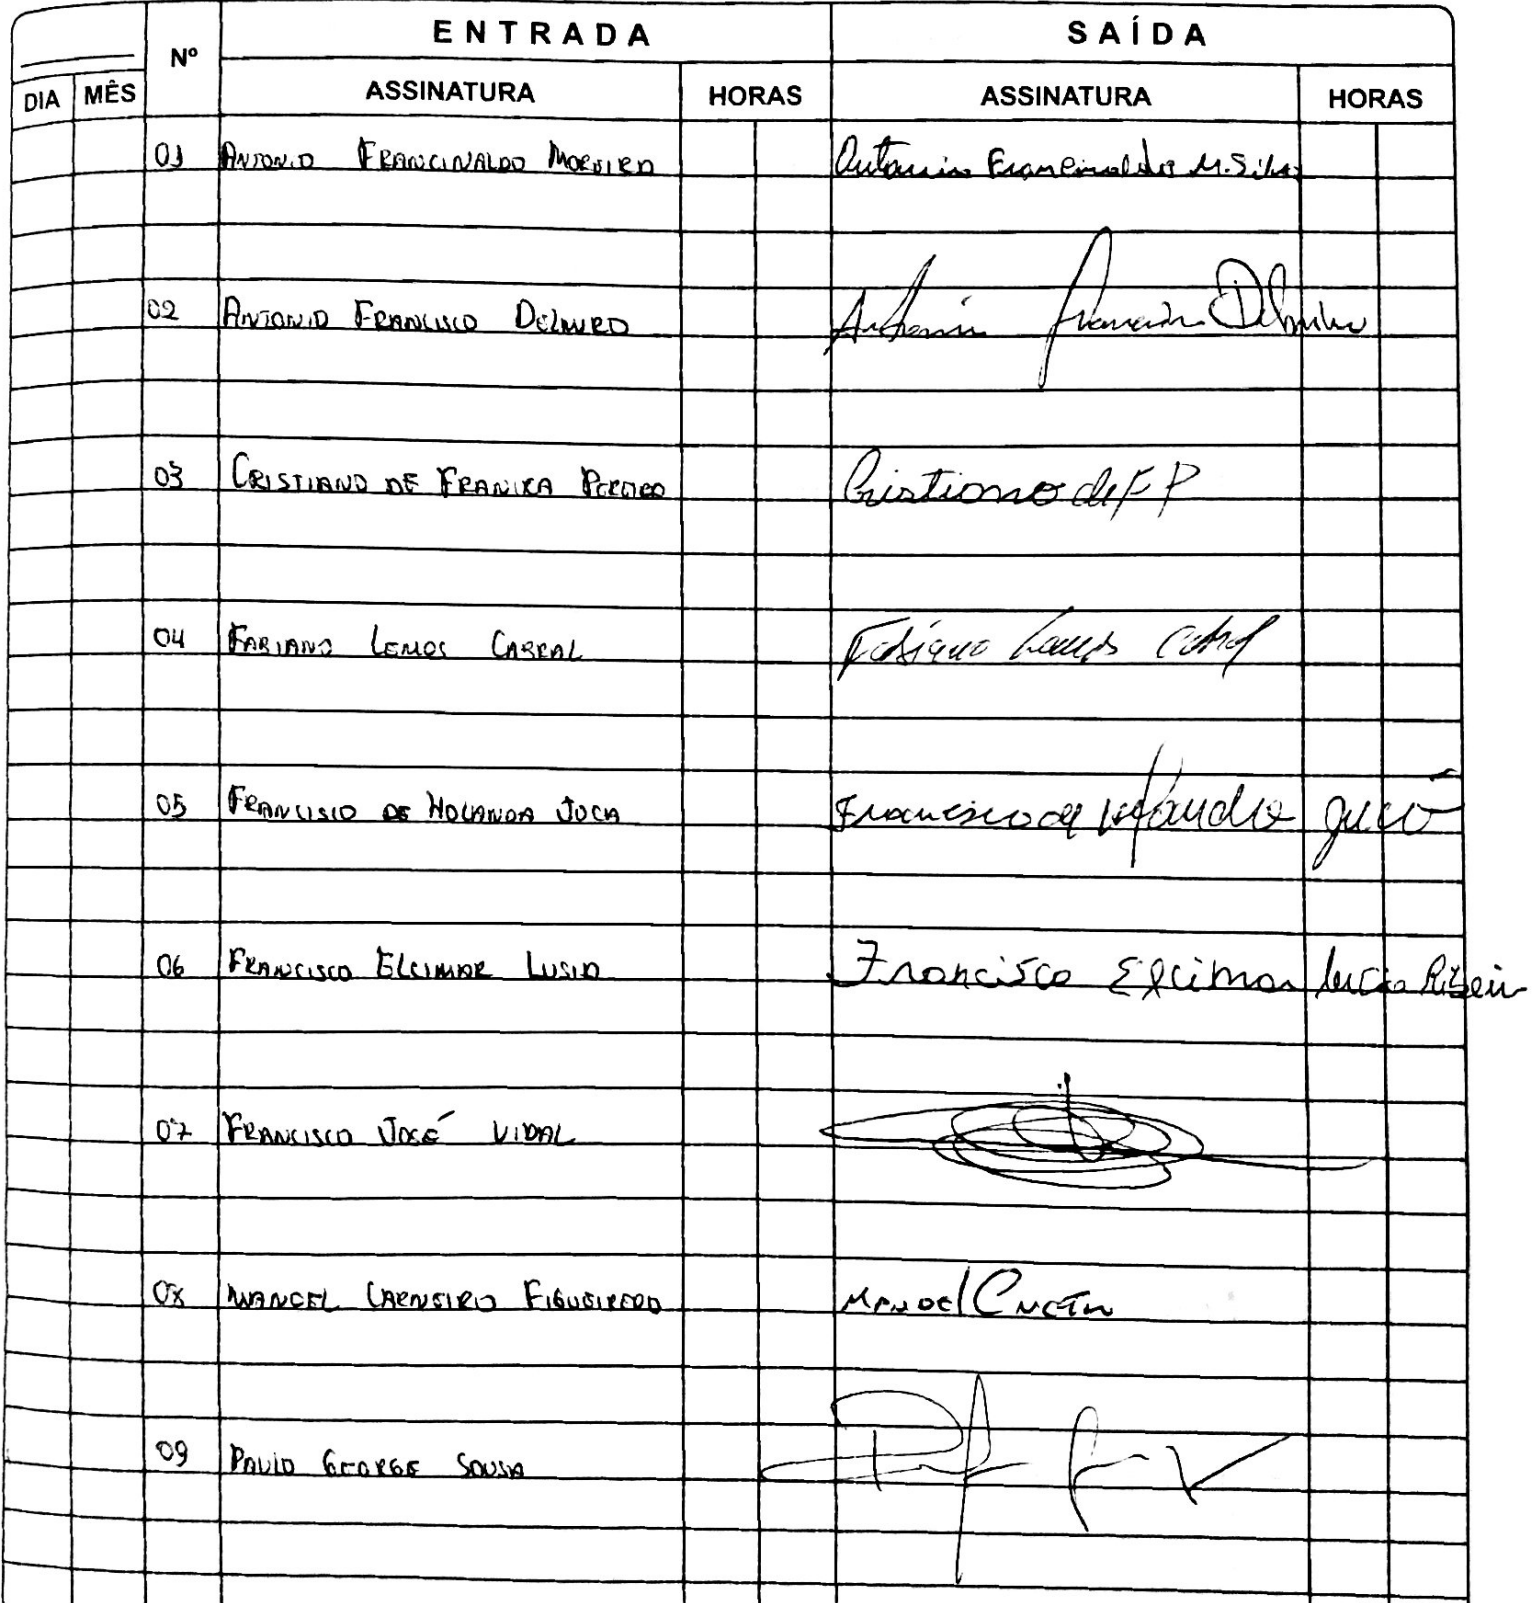 ENTRADA SAÍDA
Nº
DIA MÊS ASSINATURA HORAS ASSINATURA HORAS
01 ANTONIO FRANCINALDO MOREIRA Antonio Francinaldo M. Silva
02 ANTONIO FRANCISCO DELMIRO Antonio Francisco Delmiro
03 CRISTIANO DE FRANCA PEREIRA Cristiano de F P
04 FABIANO LEMOS CABRAL Fabiano Lemos Cabral
05 FRANCISCO DE HOLANDA JUCA Francisco de Holanda Jucá
06 FRANCISCO ELCIMAR LUSIO Francisco Elcimar Lucio Ribeir
07 FRANCISCO JOSÉ VIDAL
08 MANOEL CARNEIRO FIGUEIREDO Manoel
09 PAULO GEORGE SOUSA